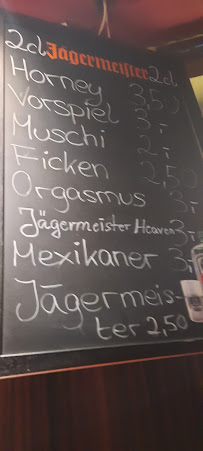 2cl Jägermeister 2cl
Horney 3,50
Vorspiel 3,-
Muschi 2,-
Ficken 2,50
Orgasmus 3,-
Jägermeister Heaven 3,-
Mexikaner 3,-
Jägermeis-
ter 2,50